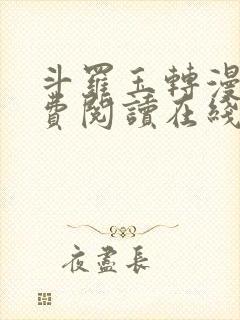 斗羅玉轉漫
費閱讀在綫
夜盡長